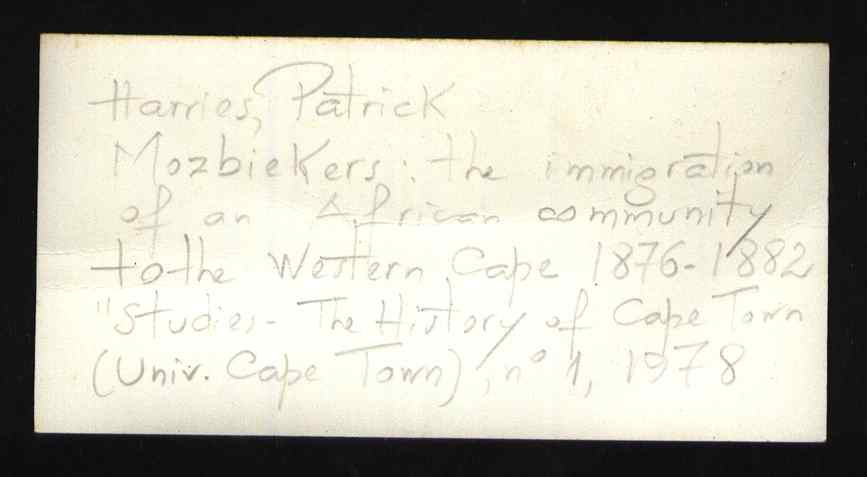 Harries, Patrick
Mozbiekers: the immigration
of an African community
to the Western Cape 1876-1882
"Studies - The History of Cape Town
(Univ. Cape Town), nº 1, 1978